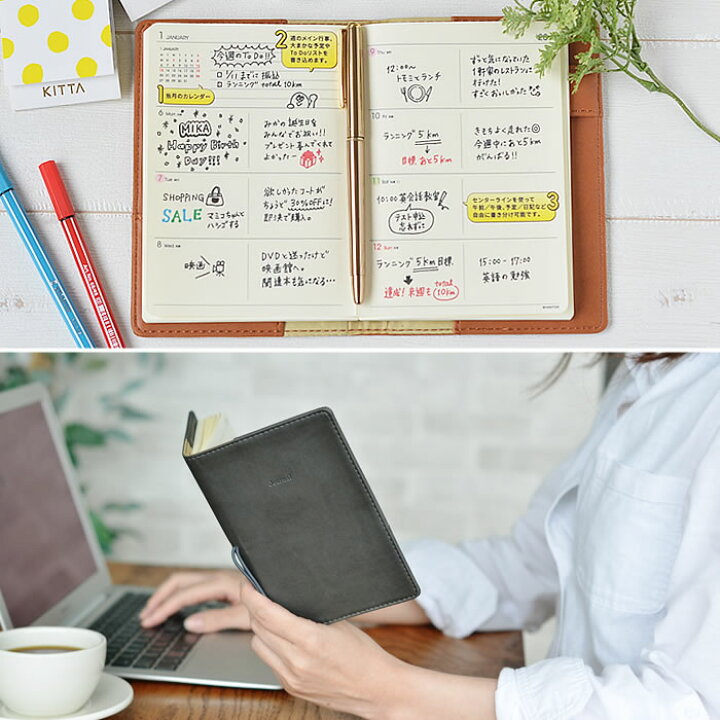 KITTA
1 JANUARY
1 JANUARY
今週のTo Do!!
□ 1/11までに 振込
□ ランニング total 10km
2 週のメイン行事、
大まかな予定や
To Doリストを
書き込めます。
1 当月のカレンダー
6 Mon
MIKA
Happy Birth
Day!!!
みかの誕生日を
みんなでお祝い!!
プレゼント喜んでくれて
よかったー
7 Tue
SHOPPING
SALE
マミコちゃんと
ハシゴする
欲しかったコートが
ちょうど30%OFFに!
即決で購入。
8 Wed
映画
DVDと迷ったけど
映画館へ。
関連本も気になる…
9 Thu
12:00〜
トモミとランチ
ずっと気になっていた
1軒家のレストランに
行けた!
すごくおいしかった
10 Fri
ランニング 5km
目標 あと5km
きもちよく走れた◎
今週中にあと5km
がんばる!!
11 Sat
10:00 英会話教室
テスト申込
忘れずに
センターラインを使って
午前/午後、予定/日記など
自由に書き分け可能です。
3
12 Sun
ランニング 5km 目標
達成! 来週も total 10km
15:00-17:00
英語の勉強